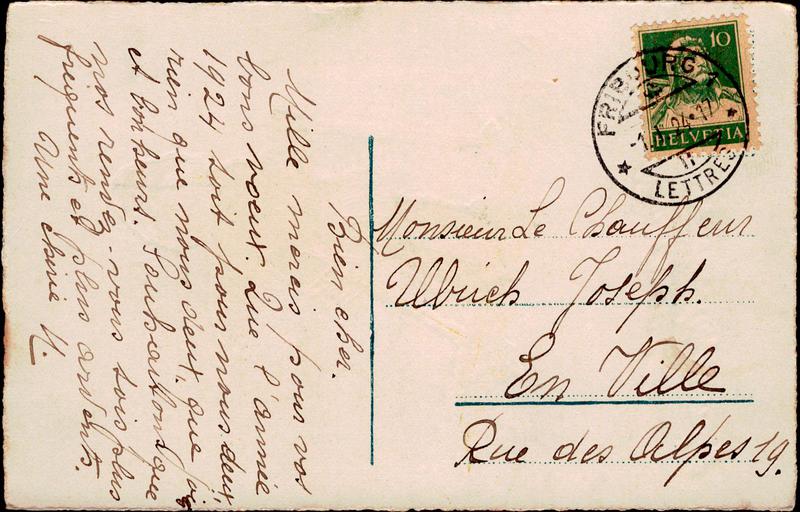 Bien cher.
Mille mercis pour vos
bons voeux. Que l'année
1924 soit pour nous deux
rien que nous deux, que joie
et bonheurs. Souhaitons que
nos rendez-vous sois plus
frequents et plus ardents.
Une
10
HELVETIA
FRIBOURG 1
LETTRES
Monsieur Le Chauffeur
Ulrich Joseph.
En Ville
Rue des Alpes 19.